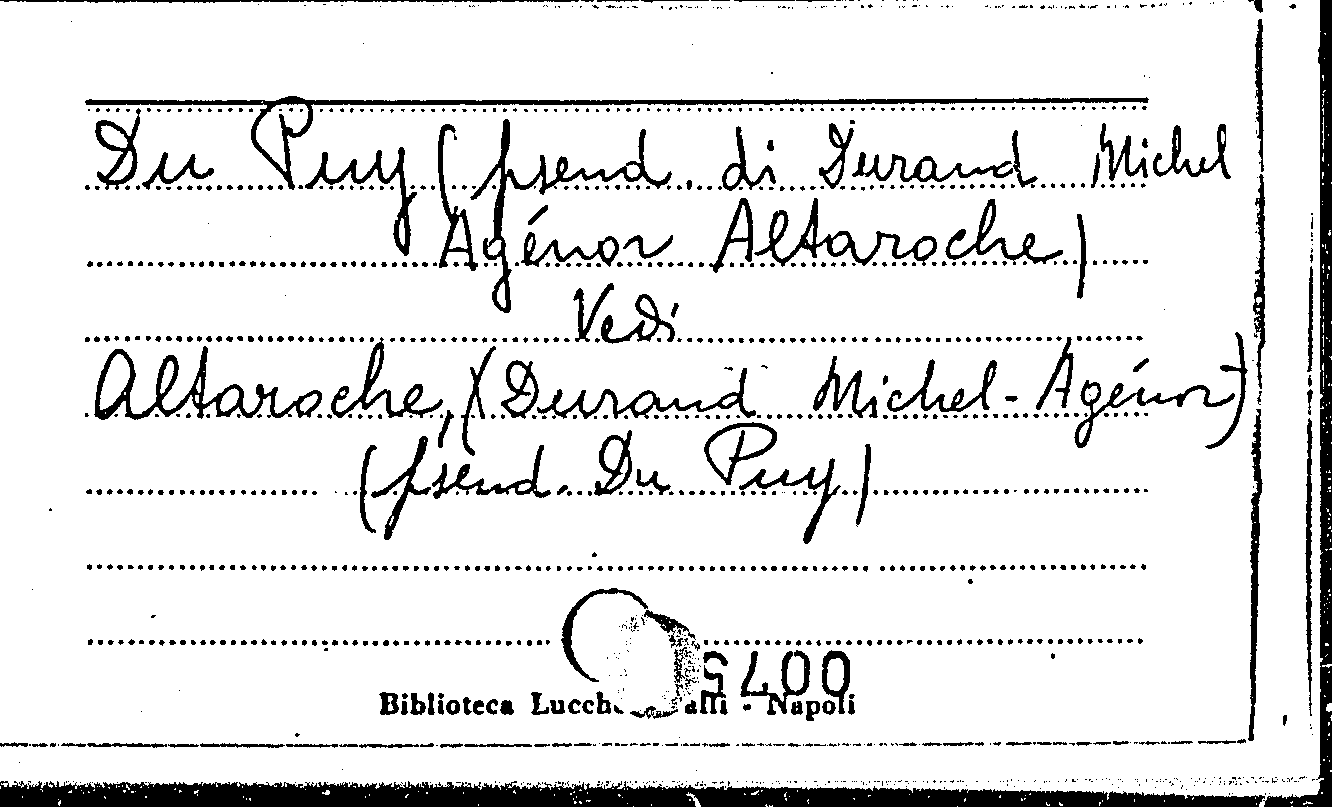 Du Puy (pseud. di Durand Michel
Agénor Altaroche)
Vedi
Altaroche, (Durand Michel-Agénor)
(pseud. Du Puy)
0075
Biblioteca - Napoli